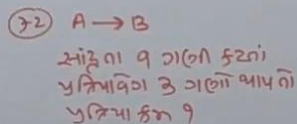 ૩-2) A → B
સાંદ્રતા 9 ગણી કરતાં
પ્રક્રિયાવેગ 3 ગણો થાય તો
પ્રક્રિયા ક્રમ ?